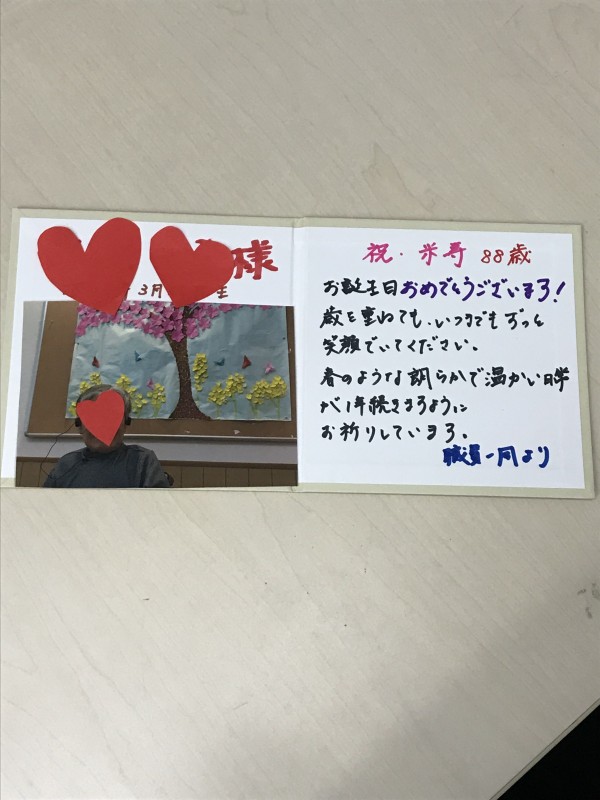 様
3月 生
祝・米寿 88歳
お誕生日おめでとうございます!
歳を重ねても、いつまでもずっと
笑顔でいてください。
春のような朗らかで温かい日々
が1年続きますように
お祈りしています。
職員一同より